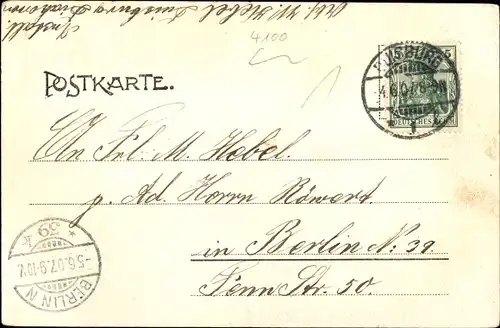 Abs. W. Hebel Duisburg
4100
POSTKARTE.
DUISBURG
4.6.07.
DEUTSCHES REICH
An Frl. M. Hebel.
p. Ad. Herrn Röwert.
in Berlin N. 39
Fenn Str. 50.
* 39 *
-5.6.07.9-10V.
BERLIN N